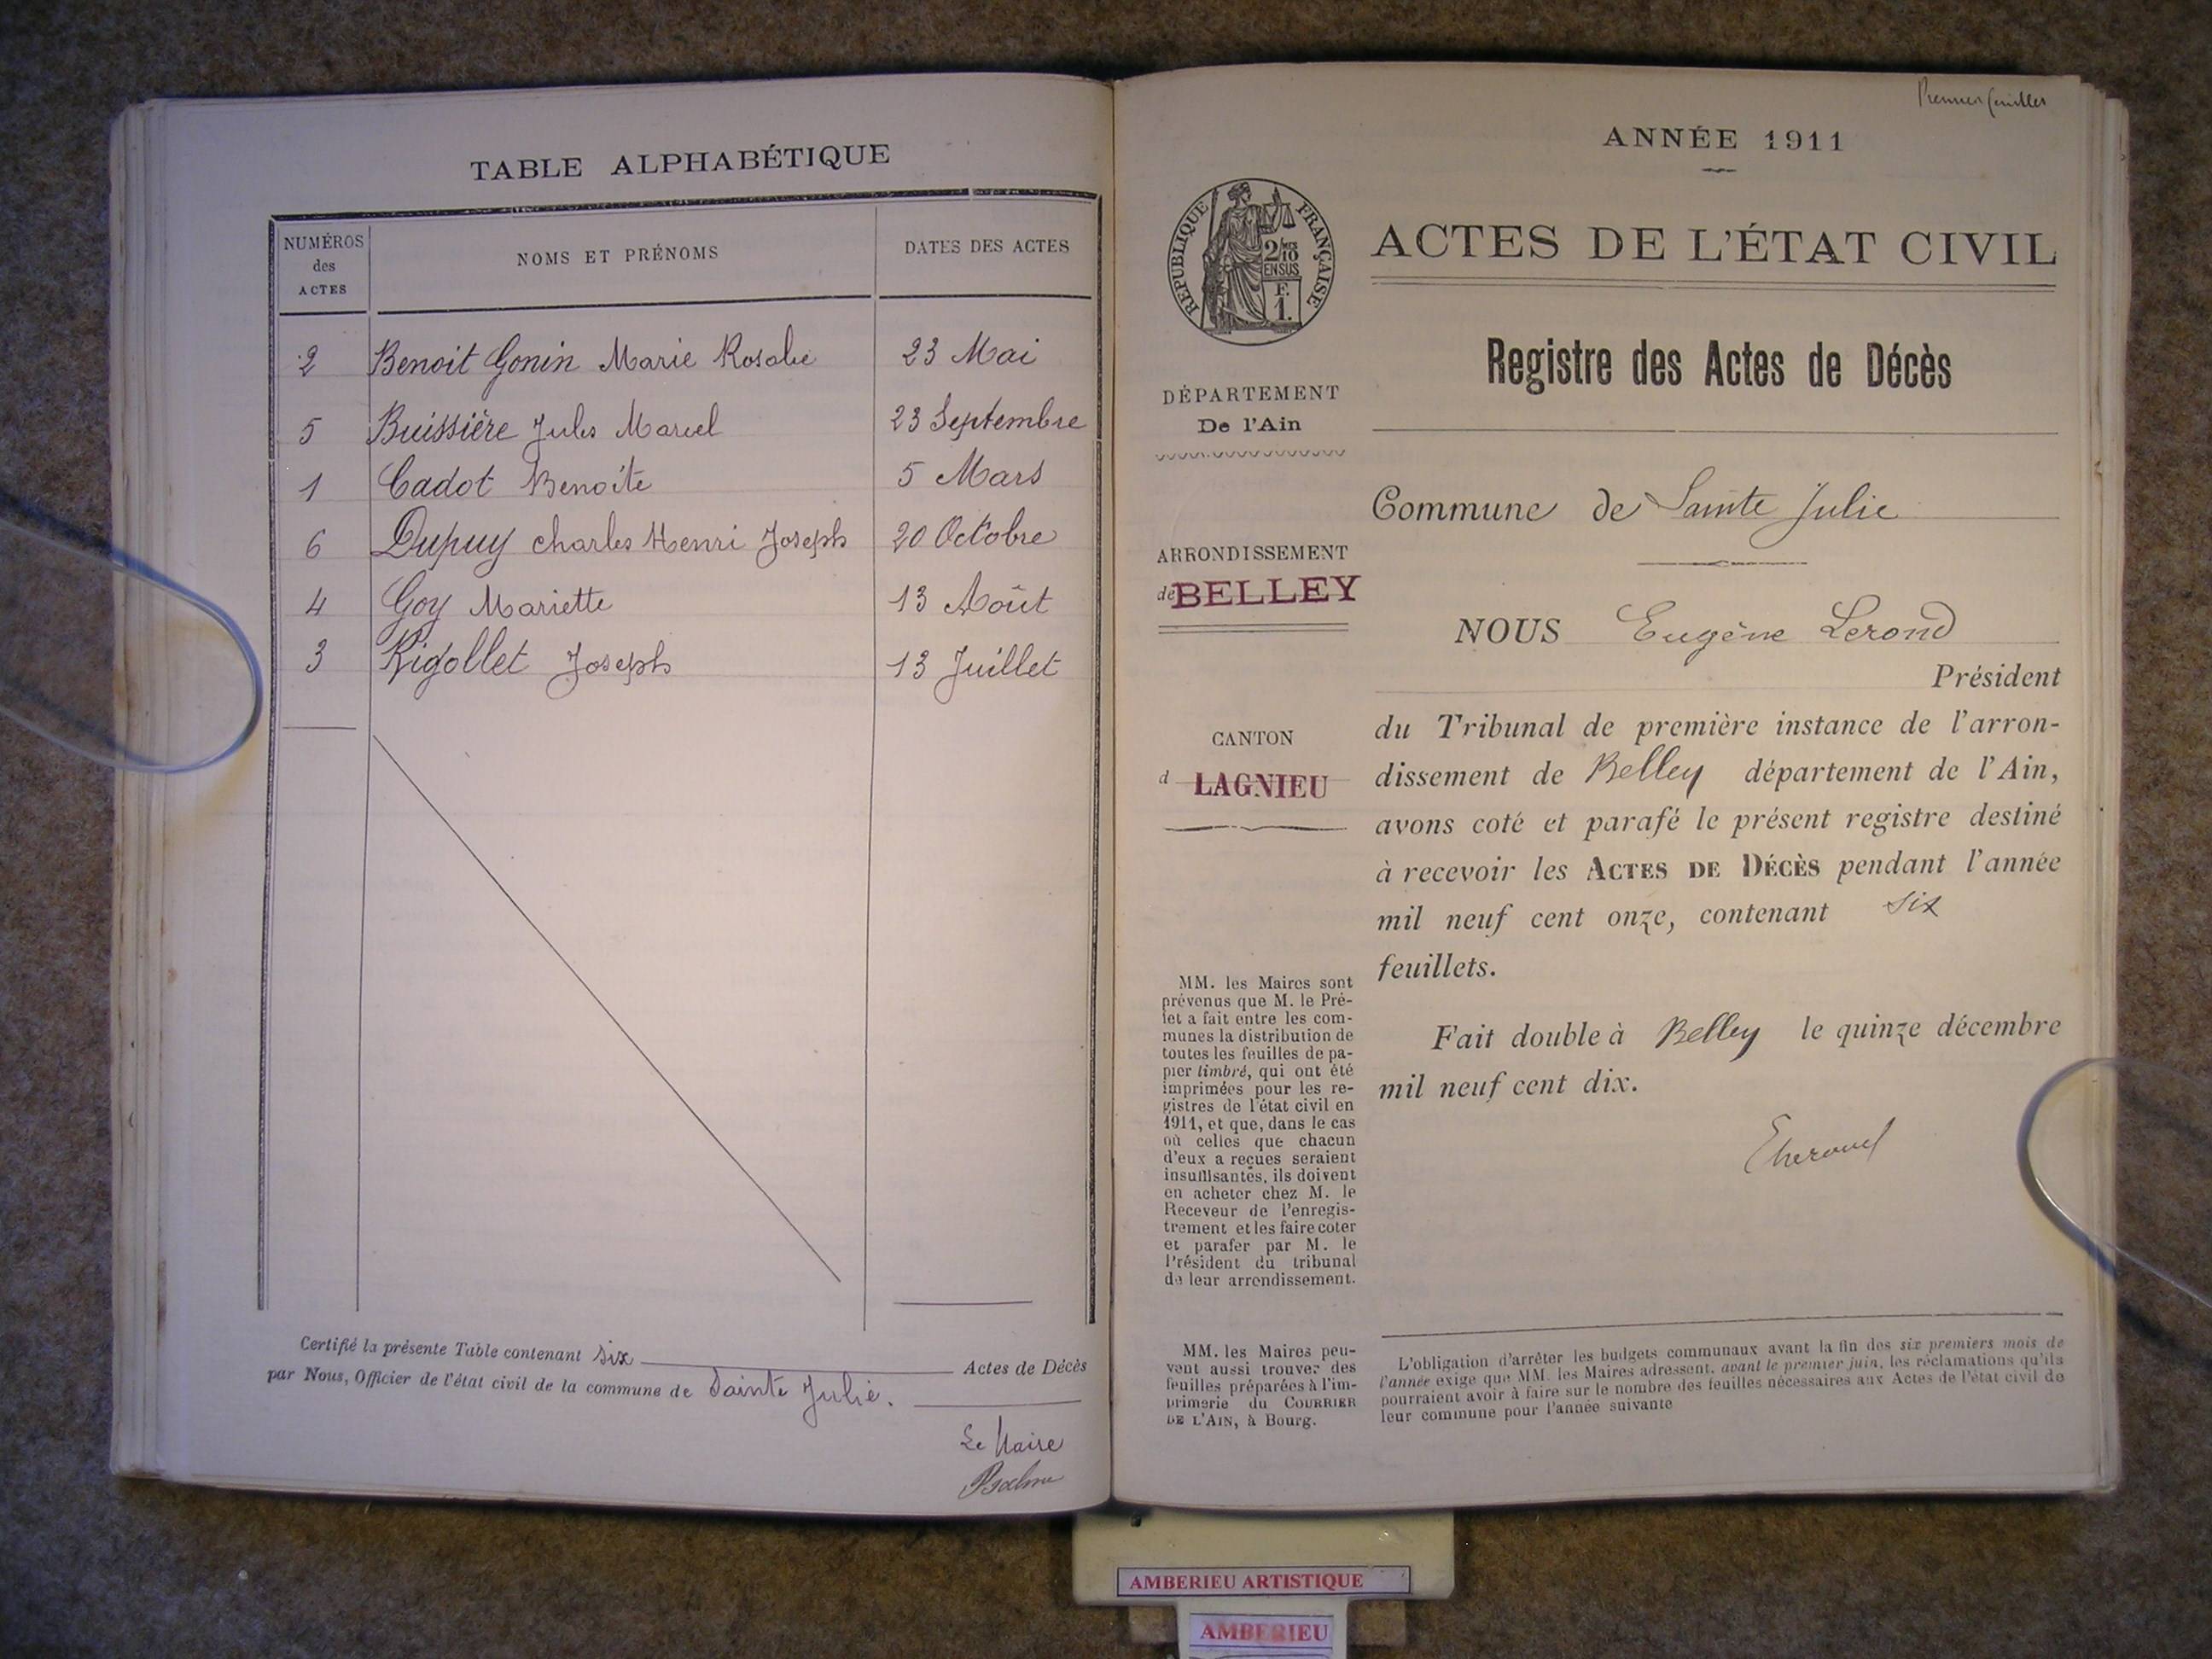 TABLE ALPHABÉTIQUE
NUMÉROS des ACTES NOMS ET PRÉNOMS DATES DES ACTES
2 Benoit Gonin Marie Rosalie 23 Mai
5 Buissière Jules Marcel 23 Septembre
1 Cadot Benoîte 5 Mars
6 Dupuy Charles Henri Joseph 20 Octobre
4 Goy Mariette 13 Août
3 Rigollet Joseph 13 Juillet
Certifié la présente Table contenant six Actes de Décès
par Nous, Officier de l'état civil de la commune de Sainte Julie.
Le Maire
Premier feuillet
ANNÉE 1911
RÉPUBLIQUE FRANÇAISE
2/10
EN SUS
F.
1.
ACTES DE L'ÉTAT CIVIL
Registre des Actes de Décès
DÉPARTEMENT
De l'Ain
Commune de Sainte Julie
ARRONDISSEMENT
de BELLEY
NOUS Eugène Lerond
Président
CANTON
d LAGNIEU
du Tribunal de première instance de l'arron-
dissement de Belley département de l'Ain,
avons coté et parafé le présent registre destiné
à recevoir les ACTES DE DÉCÈS pendant l'année
mil neuf cent onze, contenant six
feuillets.
Fait double à Belley le quinze décembre
mil neuf cent dix.
MM. les Maires sont
prévenus que M. le Pré-
fet a fait entre les com-
munes la distribution de
toutes les feuilles de pa-
pier timbré, qui ont été
imprimées pour les re-
gistres de l'état civil en
1911, et que, dans le cas
où celles que chacun
d'eux a reçues seraient
insuffisantes, ils doivent
en acheter chez M. le
Receveur de l'enregis-
trement et les faire coter
et parafer par M. le
Président du tribunal
de leur arrondissement.
MM. les Maires peu-
vent aussi trouver des
feuilles préparées à l'im-
primerie du COURRIER
DE L'AIN, à Bourg.
L'obligation d'arrêter les budgets communaux avant la fin des six premiers mois de
l'année exige que MM. les Maires adressent, avant le premier juin, les réclamations qu'ils
pourraient avoir à faire sur le nombre des feuilles nécessaires aux Actes de l'état civil de
leur commune pour l'année suivante
AMBERIEU ARTISTIQUE
AMBERIEU